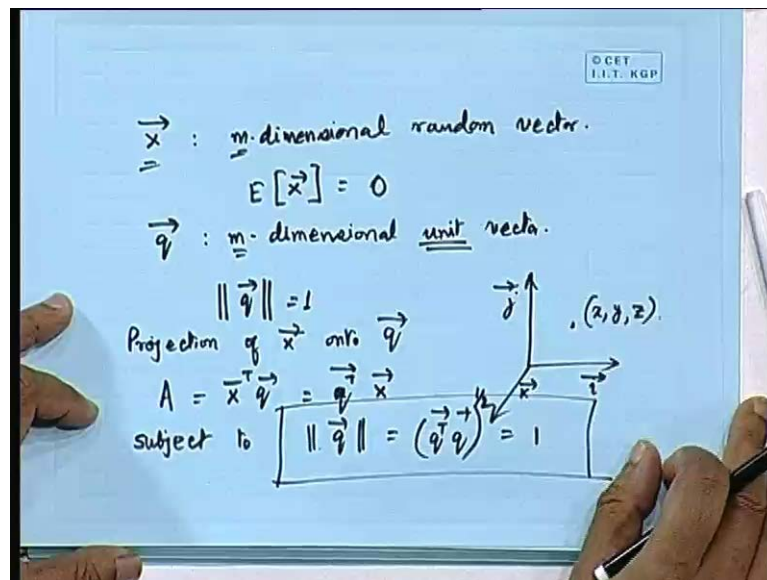 © CET
I.I.T. KGP
x⃗ : m-dimensional random vector.
E [x⃗] = 0
q⃗ : m-dimensional unit vector.
‖ q⃗ ‖ = 1
Projection of x⃗ onto q⃗
j⃗
. (x, y, z).
i⃗
k⃗
A = x⃗ᵀ q⃗ = q⃗ᵀ x⃗
subject to ‖ q⃗ ‖ = (q⃗ᵀ q⃗)^1/2 = 1